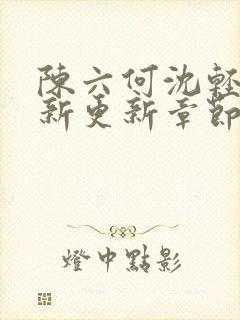 陳六何沈輕
新更新章節
燈中點影